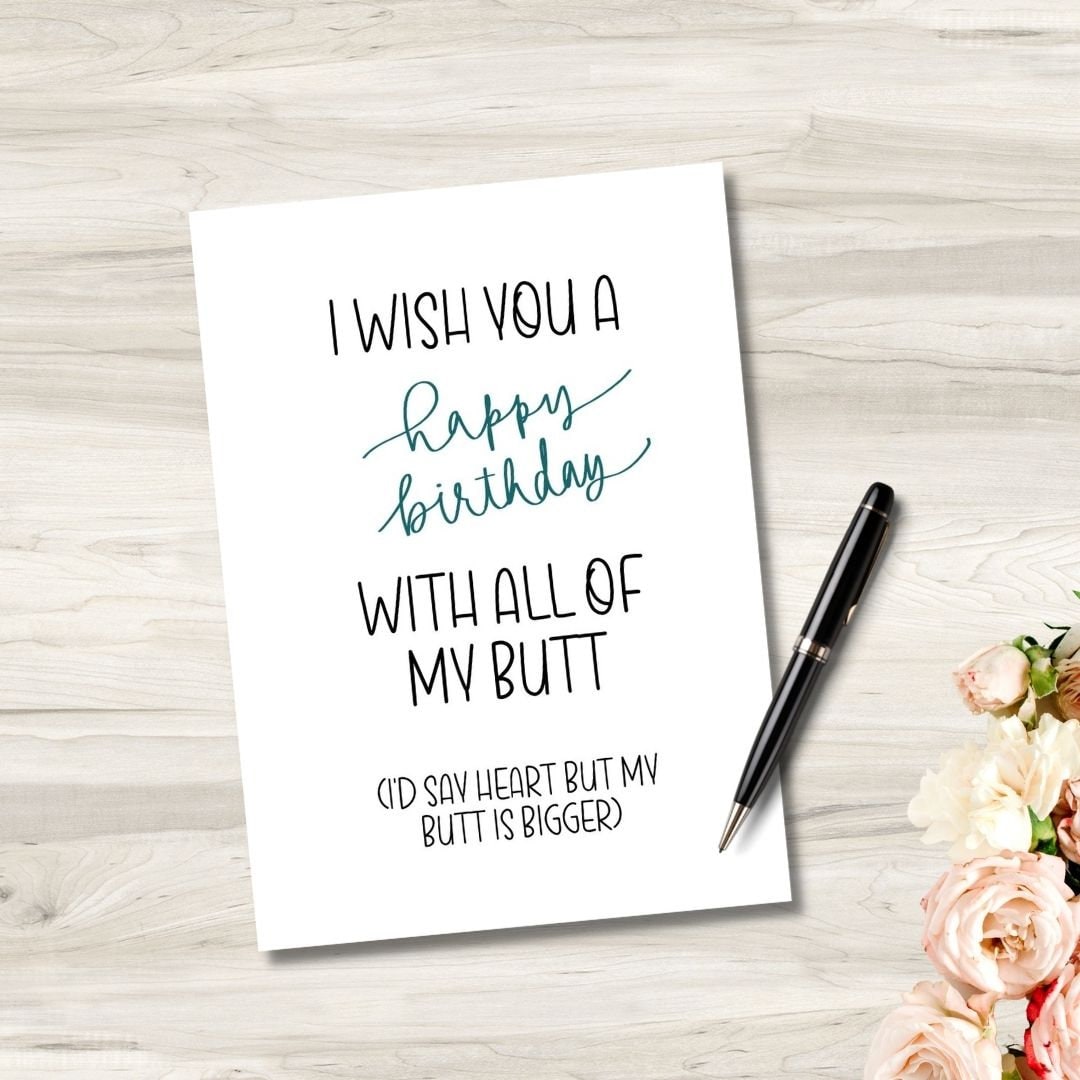 I WISH YOU A
happy
birthday
WITH ALL OF
MY BUTT
(I'D SAY HEART BUT MY
BUTT IS BIGGER)